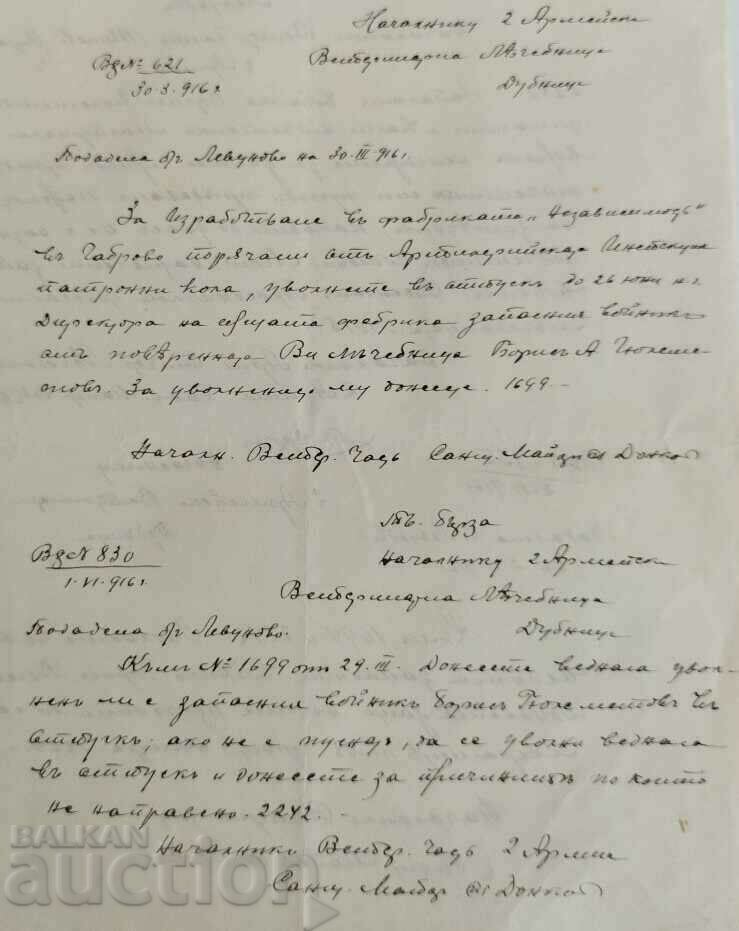 Началнику 2 Армейска
Вд № 621
Ветеринарна Лѣчебница
30·3·916 г.
Дубница
Подадена гр Левуново на 30·III·916 г.
За Изработване въ фабриката „Независимость"
въ Габрово порѫчани отъ Артилерийската Инспекция
патронни кола, уволнете въ отпускъ до 26 юни н.г.
Директора на сѫщата фабрика запасния войникъ
отъ повѣренната Ви Лѣчебница Борисъ А Гюлеме-
товъ. За уволнението му донесете. 1699 —
Началн. Ветер. Частъ Сан. Майоръ Донков
Тъ. бърза
Вд № 830
Началнику 2 Армейска
1·VI·916 г.
Ветеринарна Лѣчебница
Подадена гр Левуново.
Дубница
Къмъ № 1699 отъ 29·III. Донесете веднага увол-
ненъ ли е запасния войникъ Борисъ Гюлеметовъ въ
отпускъ; ако не е пуснатъ, да се уволни веднага
въ отпускъ и донесете за причинитѣ по които
не направено. 2242. —
Началникъ Ветер. Частъ 2 Армия
Сан. Майор Донков
BALKAN
auction